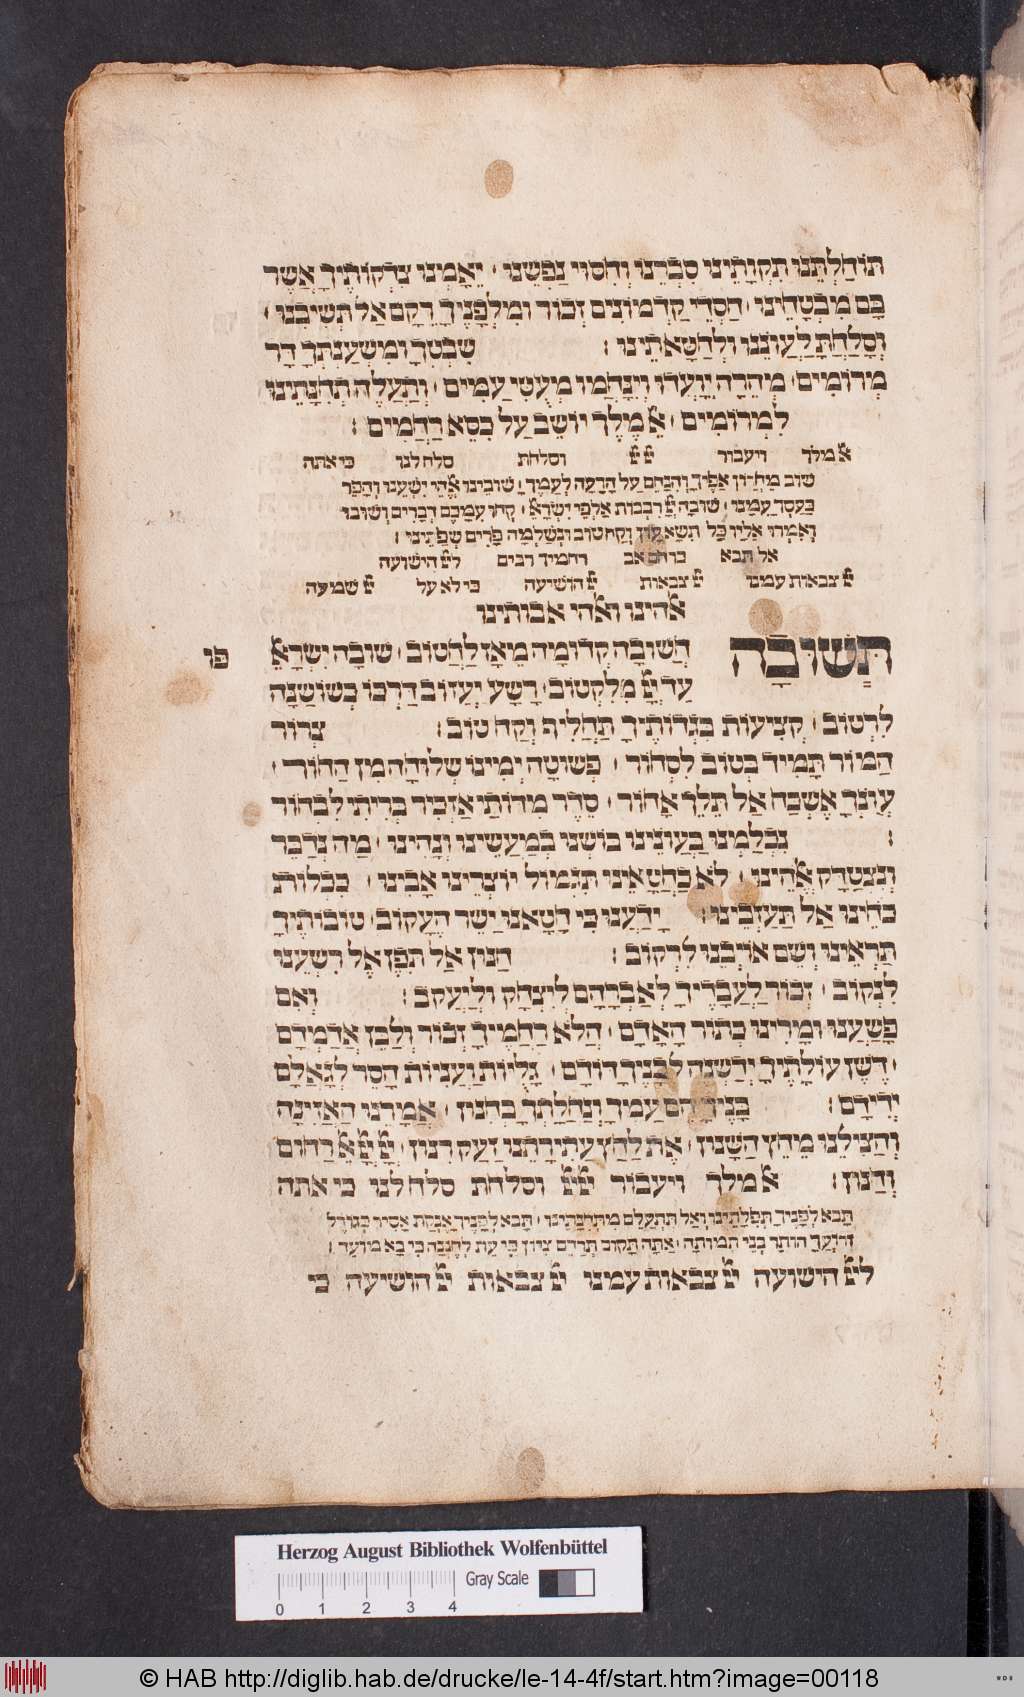 תּוֹחַלְתֵּנוּ תִקְוָתֵינוּ סִבְרֵנוּ וְחִסּוּי נַפְשֵׁנוּ ׳ יֵאָמְנוּ צִדְקוֹתֶיךָ אֲשֶׁר
בָּם מִבְטָחֵינוּ ׳ חַסְדֵי קַדְמוֹנִים זְכוֹר וּמִלְּפָנֶיךָ רֵקָם אַל תְּשִׁיבֵנוּ ׳
וְסָלַחְתָּ לַעֲוֹנֵנוּ וּלְחַטָּאתֵינוּ : שִׁבְטְךָ וּמִשְׁעַנְתְּךָ דָּר
מְרוֹמִים ׳ מְהֵרָה יְוָעֵדוּ וִינַחֲמוּ מְעַטֵּי עַמִּים ׳ וְתַעֲלֶה תְחִנָּתֵינוּ
לִמְרוֹמִים ׳ אֵ֯ מֶלֶךְ יוֹשֵׁב עַל כִּסֵּא רַחֲמִים :
א֯ מלך ויעבור י֯י֯ י֯י֯ וסלחת סלח לנו כי אתה
שׁוּב מֵחֲרוֹן אַפֶּיךָ וְהִנָּחֵם עַל הָרָעָה לְעַמֶּךָ ׳ שׁוּבֵינוּ אֱ֯הֵי יִשְׁעֵנוּ וְהָפֵר
כַּעַסְךָ עִמָּנוּ ׳ שׁוּבָה יְ֯יָ רִבְבוֹת אַלְפֵי יִשְׂרָאֵ֯ ׳ קְחוּ עִמָּכֶם דְּבָרִים וְשׁוּבוּ
וְאִמְרוּ אֵלָיו כָּל תִּשָּׂא עָוֹן וְקַח טוֹב וּנְשַׁלְּמָה פָרִים שְׂפָתֵינוּ :
אל תבא כרחם אב רחמיך רבים לי֯י֯ הישועה
י֯י֯ צבאות עמנו י֯י֯ צבאות י֯י֯ הושיעה כי לא על י֯י֯ שמעה
א֯הינו וא֯הי אבותינו
תְּשׁוּבָה חֲשׁוּבָה קְדוּמָה מֵאָז לַחֲטוֹב ׳ שׁוּבָה יִשְׂרָאֵ֯ פו
עַד יְ֯יָ מִלִּקְטוֹב ׳ רָשָׁע יְעַזּוֹב דַּרְכּוֹ כְּשׁוֹשַׁנָּה
לִרְטוֹב ׳ קְצִיעוֹת בִּגְדוֹתֶיךָ תַּחֲלִיף וְקַח טוֹב : צְרוֹר
הַמּוֹר תָּמִיד בְּטוֹב לִסְחוֹר ׳ פְּשׁוּטָה יְמִינוֹ שְׁלוּחָה מִן הַחוֹר ׳
עֲוֹנְךָ אֶשְׁכַּח אַל תֵּלֵךְ אָחוֹר ׳ סֵדֶר מִדּוֹתַי אַזְכִּיר בְּרִיתִי לִבְחוֹר
: נִכְלַמְנוּ בַּעֲוֹנֵינוּ בּוֹשְׁנוּ בְּמַעֲשֵׂינוּ וְנָהִינוּ ׳ מַה נְּדַבֵּר
וְנִצְטַדָּק אֱ֯הֵינוּ ׳ לֹא כַחֲטָאֵינוּ תִּגְמוֹל יוֹצְרֵינוּ אָבִינוּ ׳ כִּכְלוֹת
כֹּחֵינוּ אַל תַּעַזְבֵינוּ : יָדַעְנוּ כִּי חָטָאנוּ יַשֵּׁר הֶעָקוֹב ׳ טוֹבוֹתֶיךָ
תַּרְאֵינוּ וְשֵׁם אוֹיְבֵנוּ לִרְקוֹב : חַנּוּן אַל תֵּפֶן אֶל רִשְׁעֵנוּ
לִנְקוֹב ׳ זְכוֹר לַעֲבָדֶיךָ לְאַבְרָהָם לְיִצְחָק וּלְיַעֲקֹב : וְאִם
פָּשַׁעְנוּ וּמָרִינוּ כְּתוֹר הָאָדָם ׳ הֲלֹא רַחֲמֶיךָ זְכוֹר וְלָכֵן אֲדַמְדָם
׳ דֶּשֶׁן עוֹלָתֶיךָ יְדֻשְׁנֶה לְבָנֶיךָ דּוֹדָם ׳ גָּלֻיּוֹת וַעֲנִיּוּת הָסֵר לְגָאֳלָם
יְדִידָם : בָּנֶיךָ הֵם עַמְּךָ וְנַחֲלָתְךָ בְּחִנּוּן ׳ אֲמָרֵנוּ הַאֲזִינָה
וְהַצִּילֵנוּ מֵחֵץ הַשָּׁנוּן ׳ אֶת לַחַץ עֲתִירָתֵנוּ זַעַק רִנּוּן ׳ יְ֯יָ יְ֯יָ אֵ֯ רַחוּם
וְחַנּוּן : א֯ מלך ויעבור י֯י֯ י֯י֯ וסלחת סלח לנו כי אתה
תָּבֹא לְפָנֶיךָ תְּפִלָּתֵינוּ וְאַל תִּתְעַלַּם מִתְּחִנָּתֵינוּ ׳ תָּבֹא לְפָנֶיךָ אֶנְקַת אָסִיר כְּגוֹדֶל
זְרוֹעֲךָ הוֹתֵר בְּנֵי תְמוּתָה ׳ אַתָּה תָקוּם תְּרַחֵם צִיּוֹן כִּי עֵת לְחֶנְנָהּ כִּי בָא מוֹעֵד :
לי֯י֯ הישועה י֯י֯ צבאות עמנו י֯י֯ צבאות י֯י֯ הושיעה כי
Herzog August Bibliothek Wolfenbüttel
Gray Scale
0 1 2 3 4
© HAB http://diglib.hab.de/drucke/le-14-4f/start.htm?image=00118